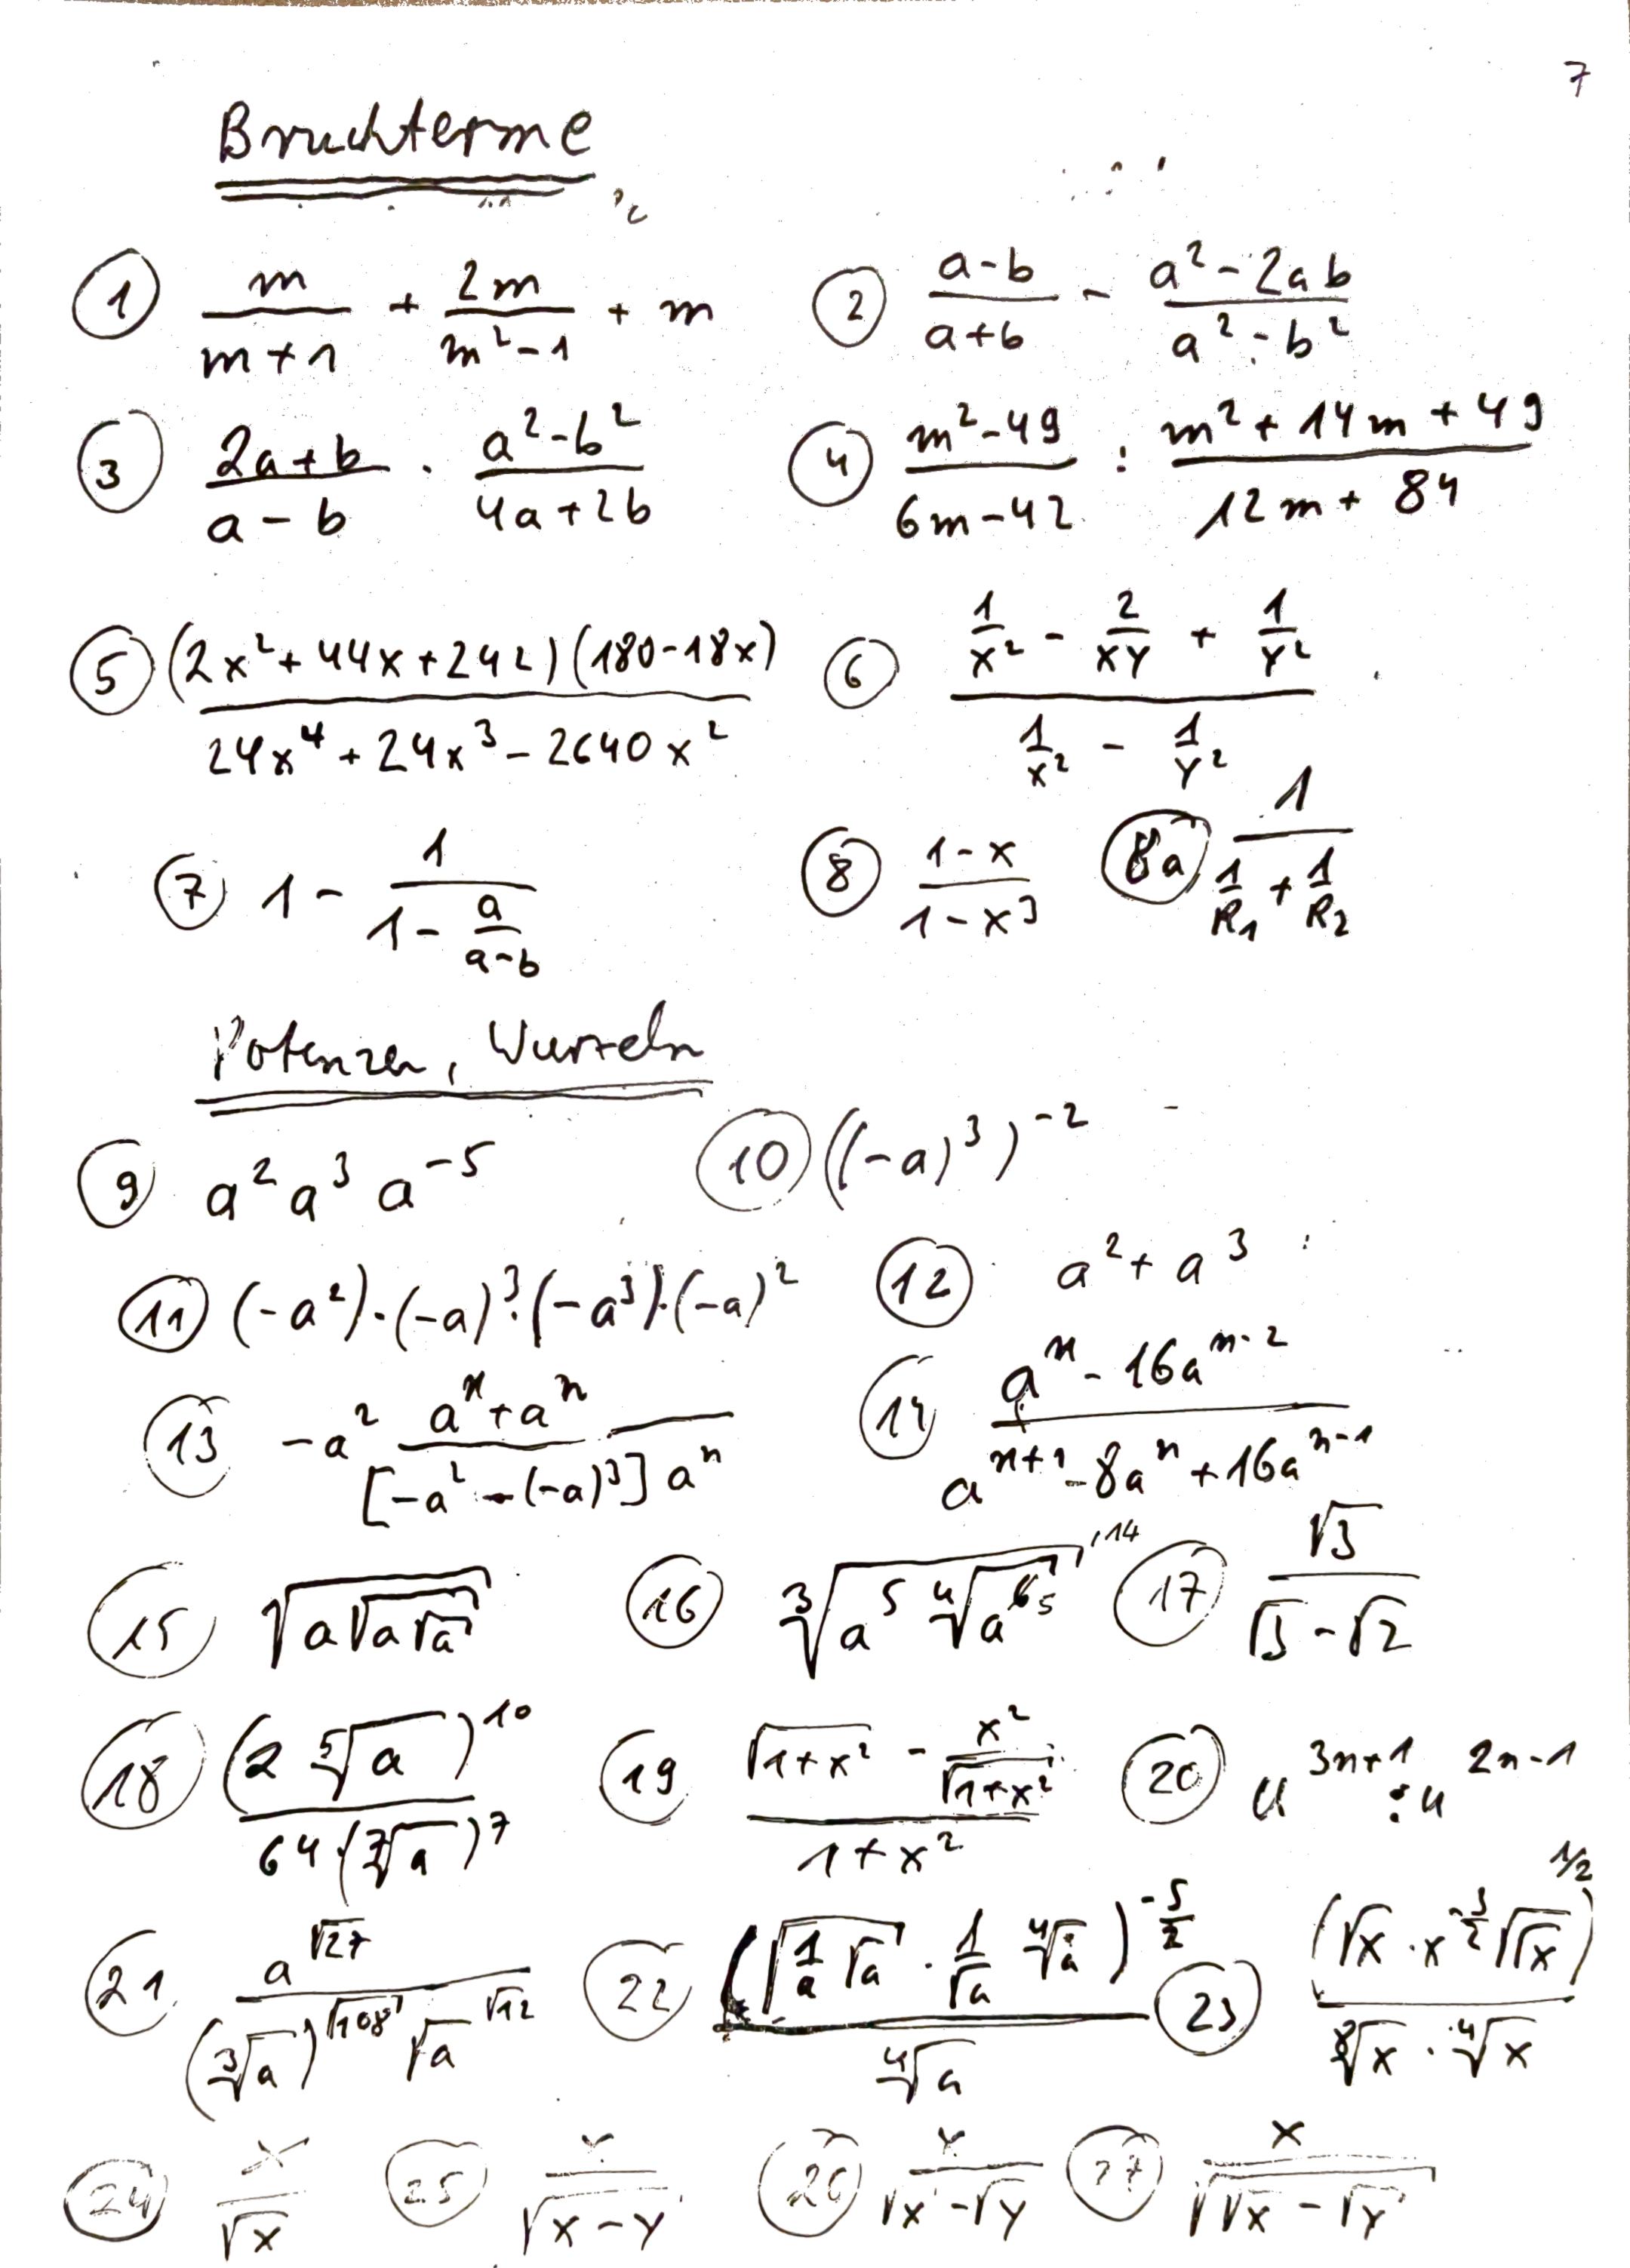 7
Bruchterme
① m/(m+1) + 2m/(m²-1) + m
② (a-b)/(a+b) - (a²-2ab)/(a²-b²)
③ (2a+b)/(a-b) · (a²-b²)/(4a+2b)
④ (m²-49)/(6m-42) : (m²+14m+49)/(12m+84)
⑤ (2x²+44x+242)(180-18x)/(24x⁴+24x³-2640x²)
⑥ (1/x² - 2/xy + 1/y²)/(1/x² - 1/y²)
⑦ 1 - 1/(1 - a/(a-b))
⑧ (1-x)/(1-x³)
8a 1/(1/R₁ + 1/R₂)
Potenzen, Wurzeln
⑨ a² a³ a⁻⁵
⑩ ((-a)³)⁻²
⑪ (-a²)·(-a)³·(-a³)·(-a)²
⑫ a² + a³
⑬ -a² (aⁿ+aⁿ)/([-a² - (-a)³] aⁿ)
⑭ (aⁿ - 16aⁿ⁻²)/(aⁿ⁺¹ - 8aⁿ + 16aⁿ⁻¹)
⑮ √(a√(a√a))
⑯ ³√(a⁵ ⁴√(a))¹⁴
⑰ √3/(√3-√2)
⑱ (2 ⁵√a)¹⁰/(64(⁷√a)⁷)
⑲ (√(1+x²) - x²/√(1+x²))/(1+x²)
⑳ u³ⁿ⁺¹ : u²ⁿ⁻¹
㉑ a^√27/((³√a)^√108 √a^√12)
㉒ (√(1/a √a) · 1/√a ⁴√a)^(-5/2)/⁴√a
㉓ (√x · x^(-3/2) √√x)^(1/2)/(⁸√x · ⁴√x)
㉔ x/√x
㉕ x/√(x-y)
㉖ x/(√x-√y)
㉗ x/√(√x-√y)